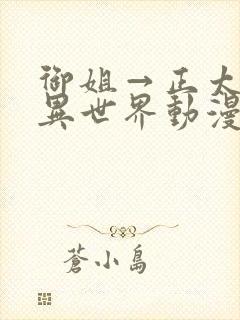 御姐→正太
異世界動漫
蒼小島